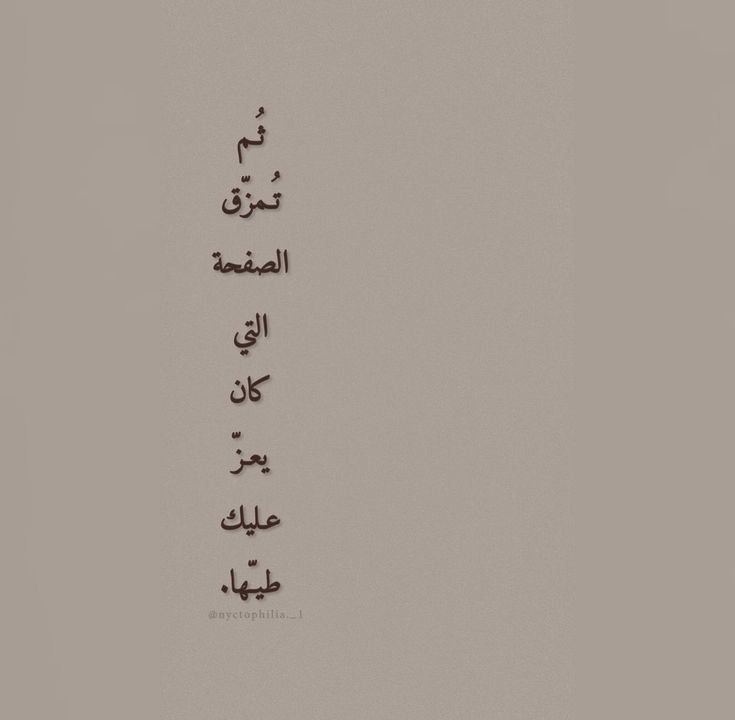 ثُم
تُمزّق
الصفحة
التي
كان
يعزّ
عليك
طيّها.
@nyctophilia._1